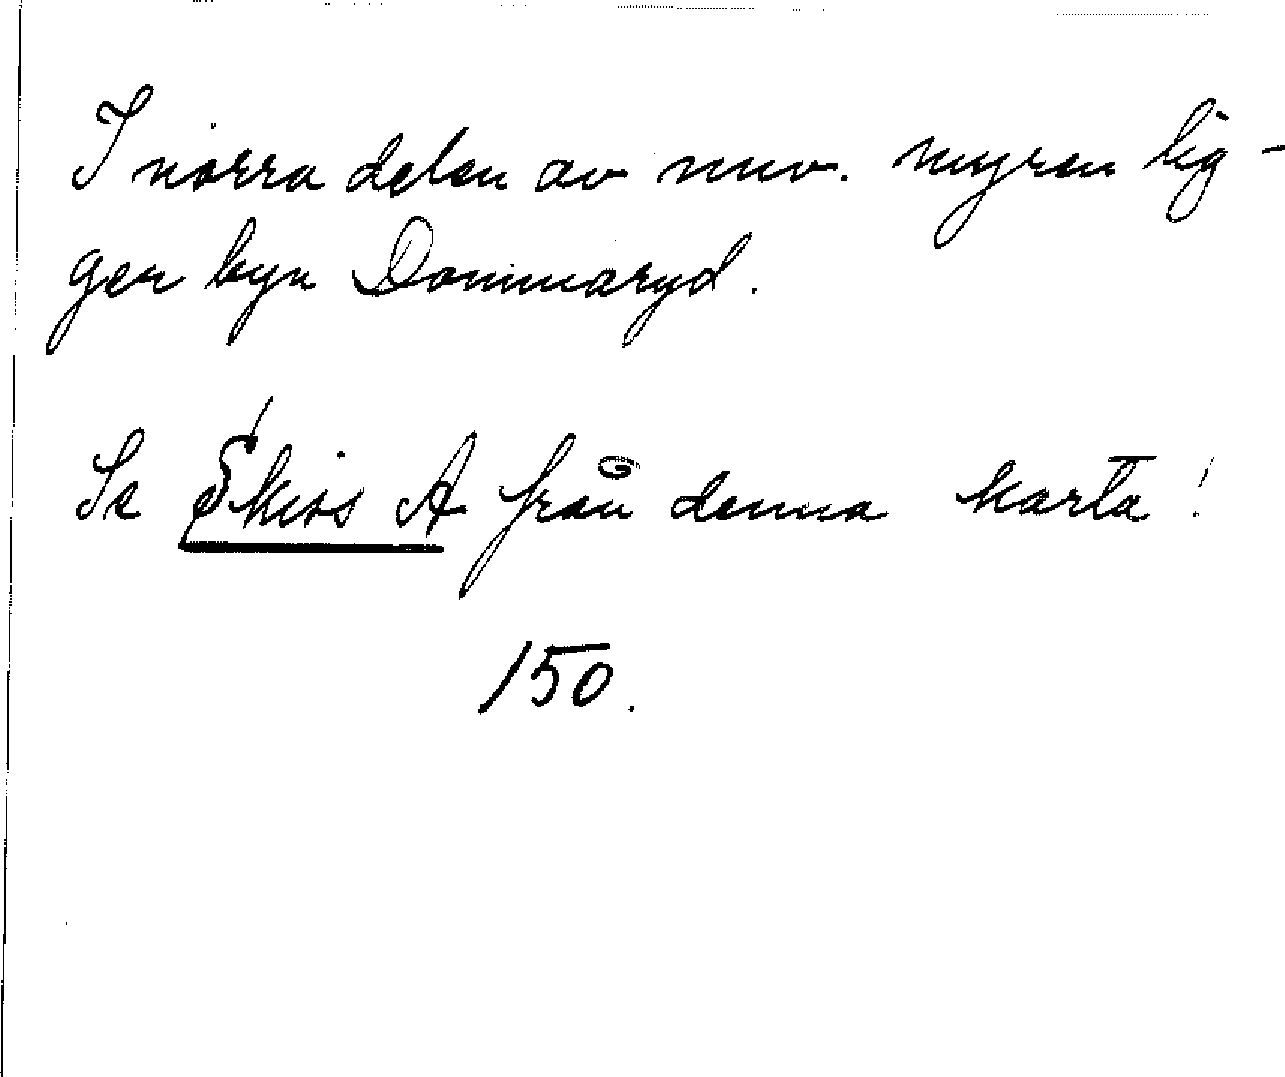 I norra delen av nuv. myren lig-
ger byn Dommaryd.
Se Skiss A från denna karta!
150.